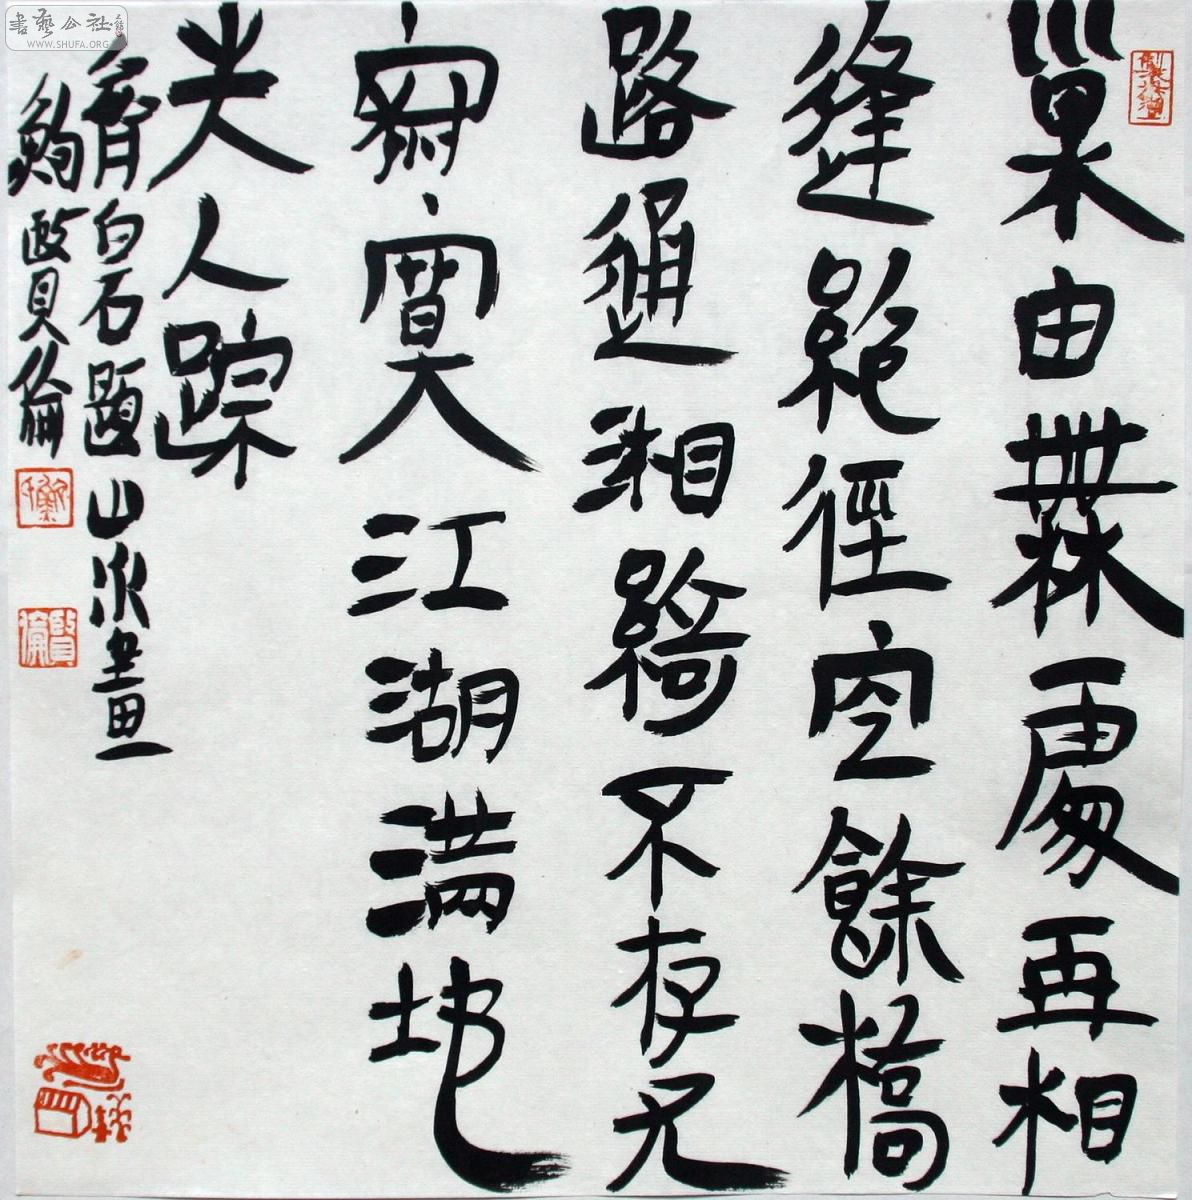 巢由無處再相
逢絕徑空餘橋
路通湘綺不存兄
寂寞江湖滿地
失人踪
齊白石題山水畫
賢倫
書藝公社
WWW.SHUFA.ORG